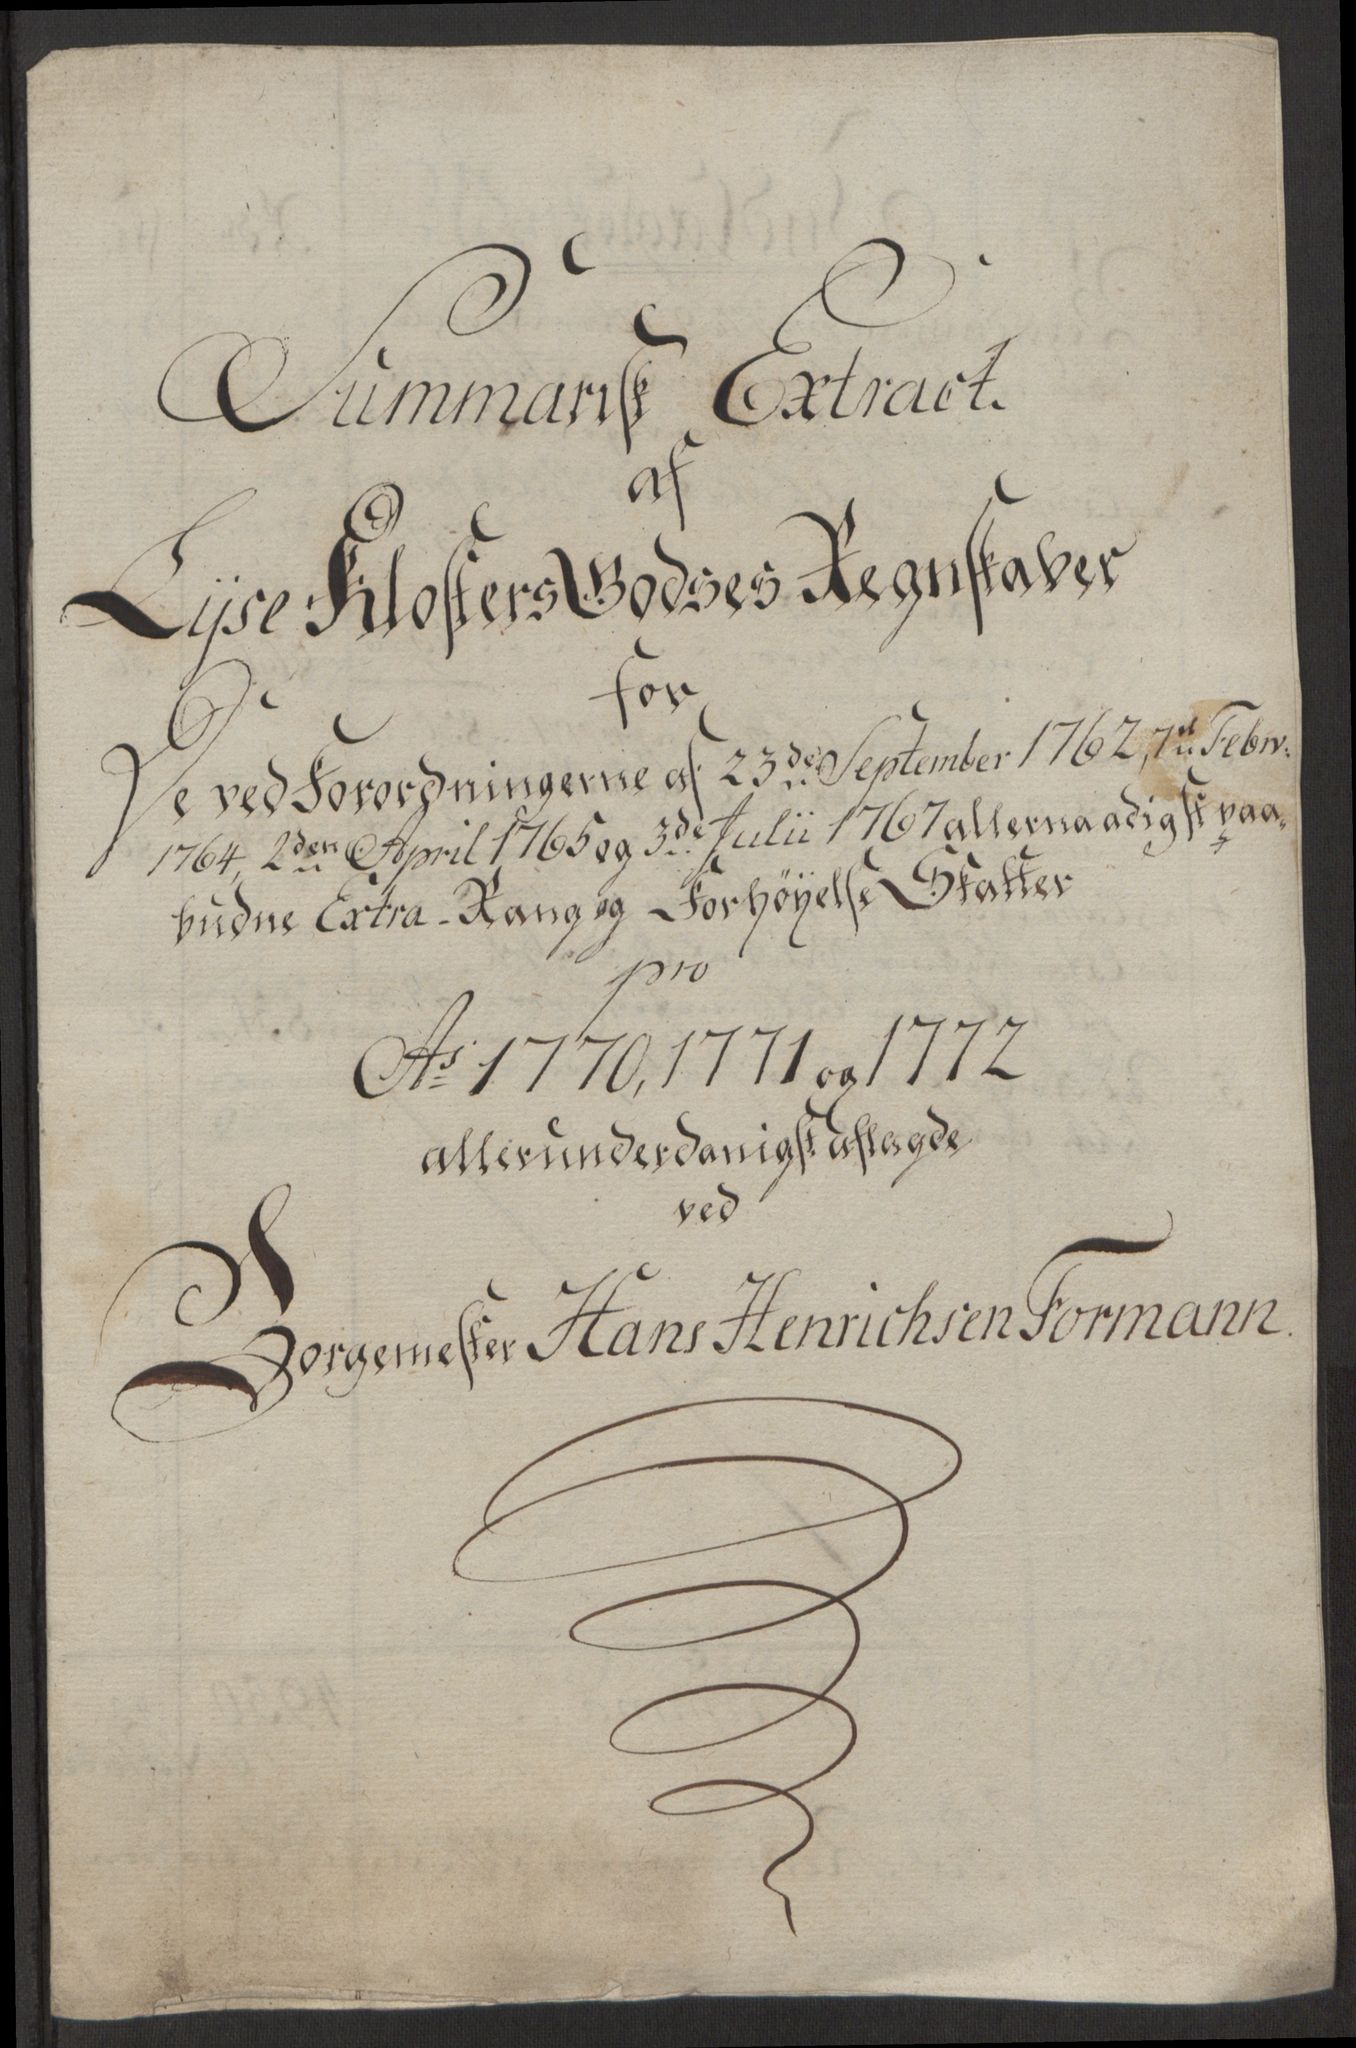 Summarisk Extract.
af
Lyse Klosters Godses Regnskaver
for
De ved Forordningerne af 23de September 1762, 7de Febr:
1764, 2den April 1765 og 3de Julii 1767 allernaadigst paa-
budne Extra- Rang og Forhøyelse Skatter
pro
As 1770, 1771 og 1772
allerunderdanigst aflagde
ved
Borgemester Hans Henrichsen Formann.